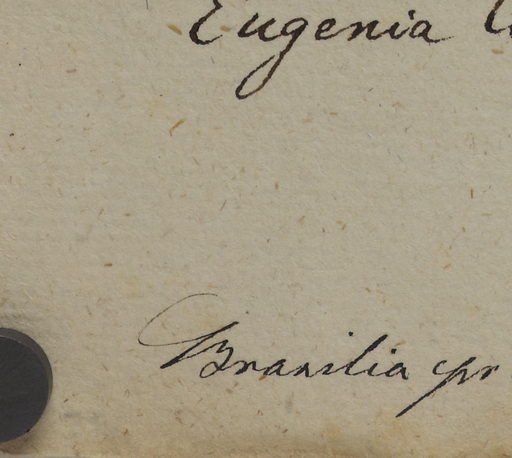 Eugenia
Brasilia pr